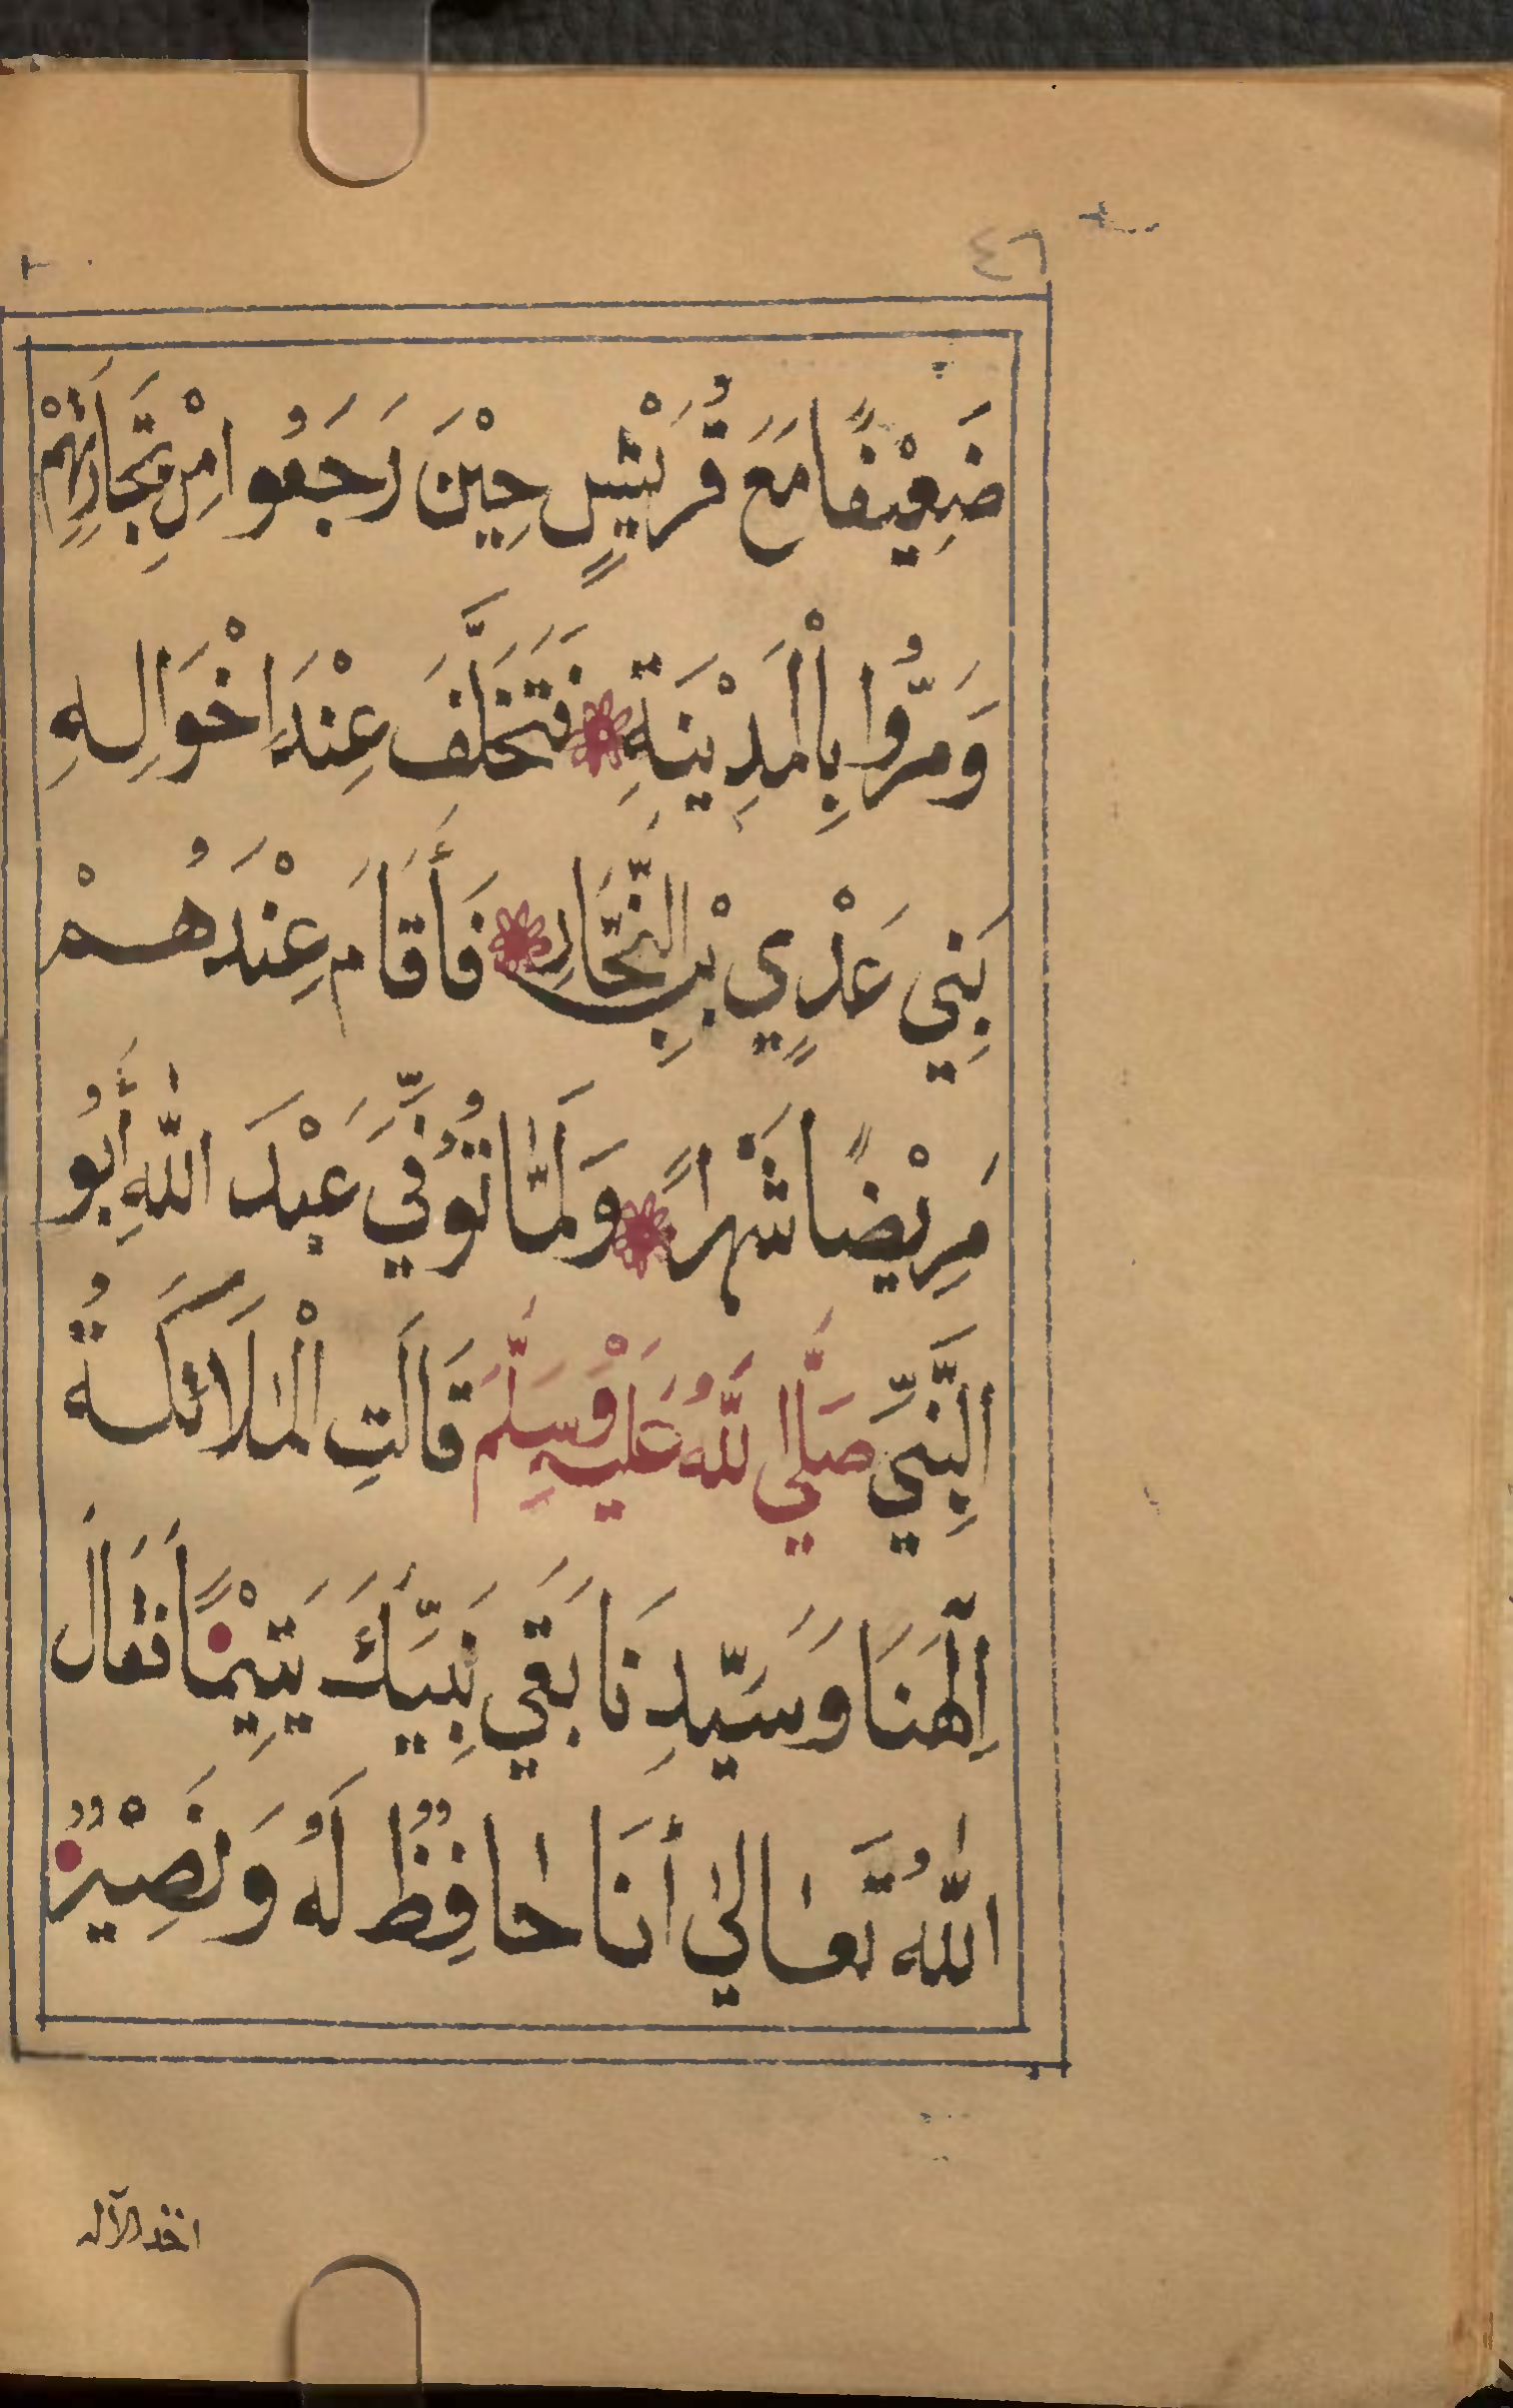 ٤٦
ضَعِيْفًا مَعَ قُرَيْشٍ حِيْنَ رَجَعُوا مِنْ تِجَارَتِهِمْ
وَمَرُّوا بِاْلمَدِيْنَةِ فَتَخَلَّفَ عِنْدَ اَخْوَالِهِ
بَنِي عَدْيٍ بْنِ النَّجَّارِ فَأَقَامَ عِنْدَهُمْ
مَرِيْضًا شَهْرًا وَلَمَّا تُوُفِّيَ عَبْدَ اللّٰهِ أَبُو
النَّبِيِّ صَلَّي اللّٰهُ عَلَيْهِ وَسَلَّمَ قَالَتِ الْمَلَائِكَةُ
اِلٓهَنَا وَسَيِّدِنَا بَقَي نَبِيِّكَ يَتِيْمًا فَقَالَ
اللّٰهُ تَعَالَيٰ أَنَا حَافِظٌ لَهُ وَنَصِيْرٌ